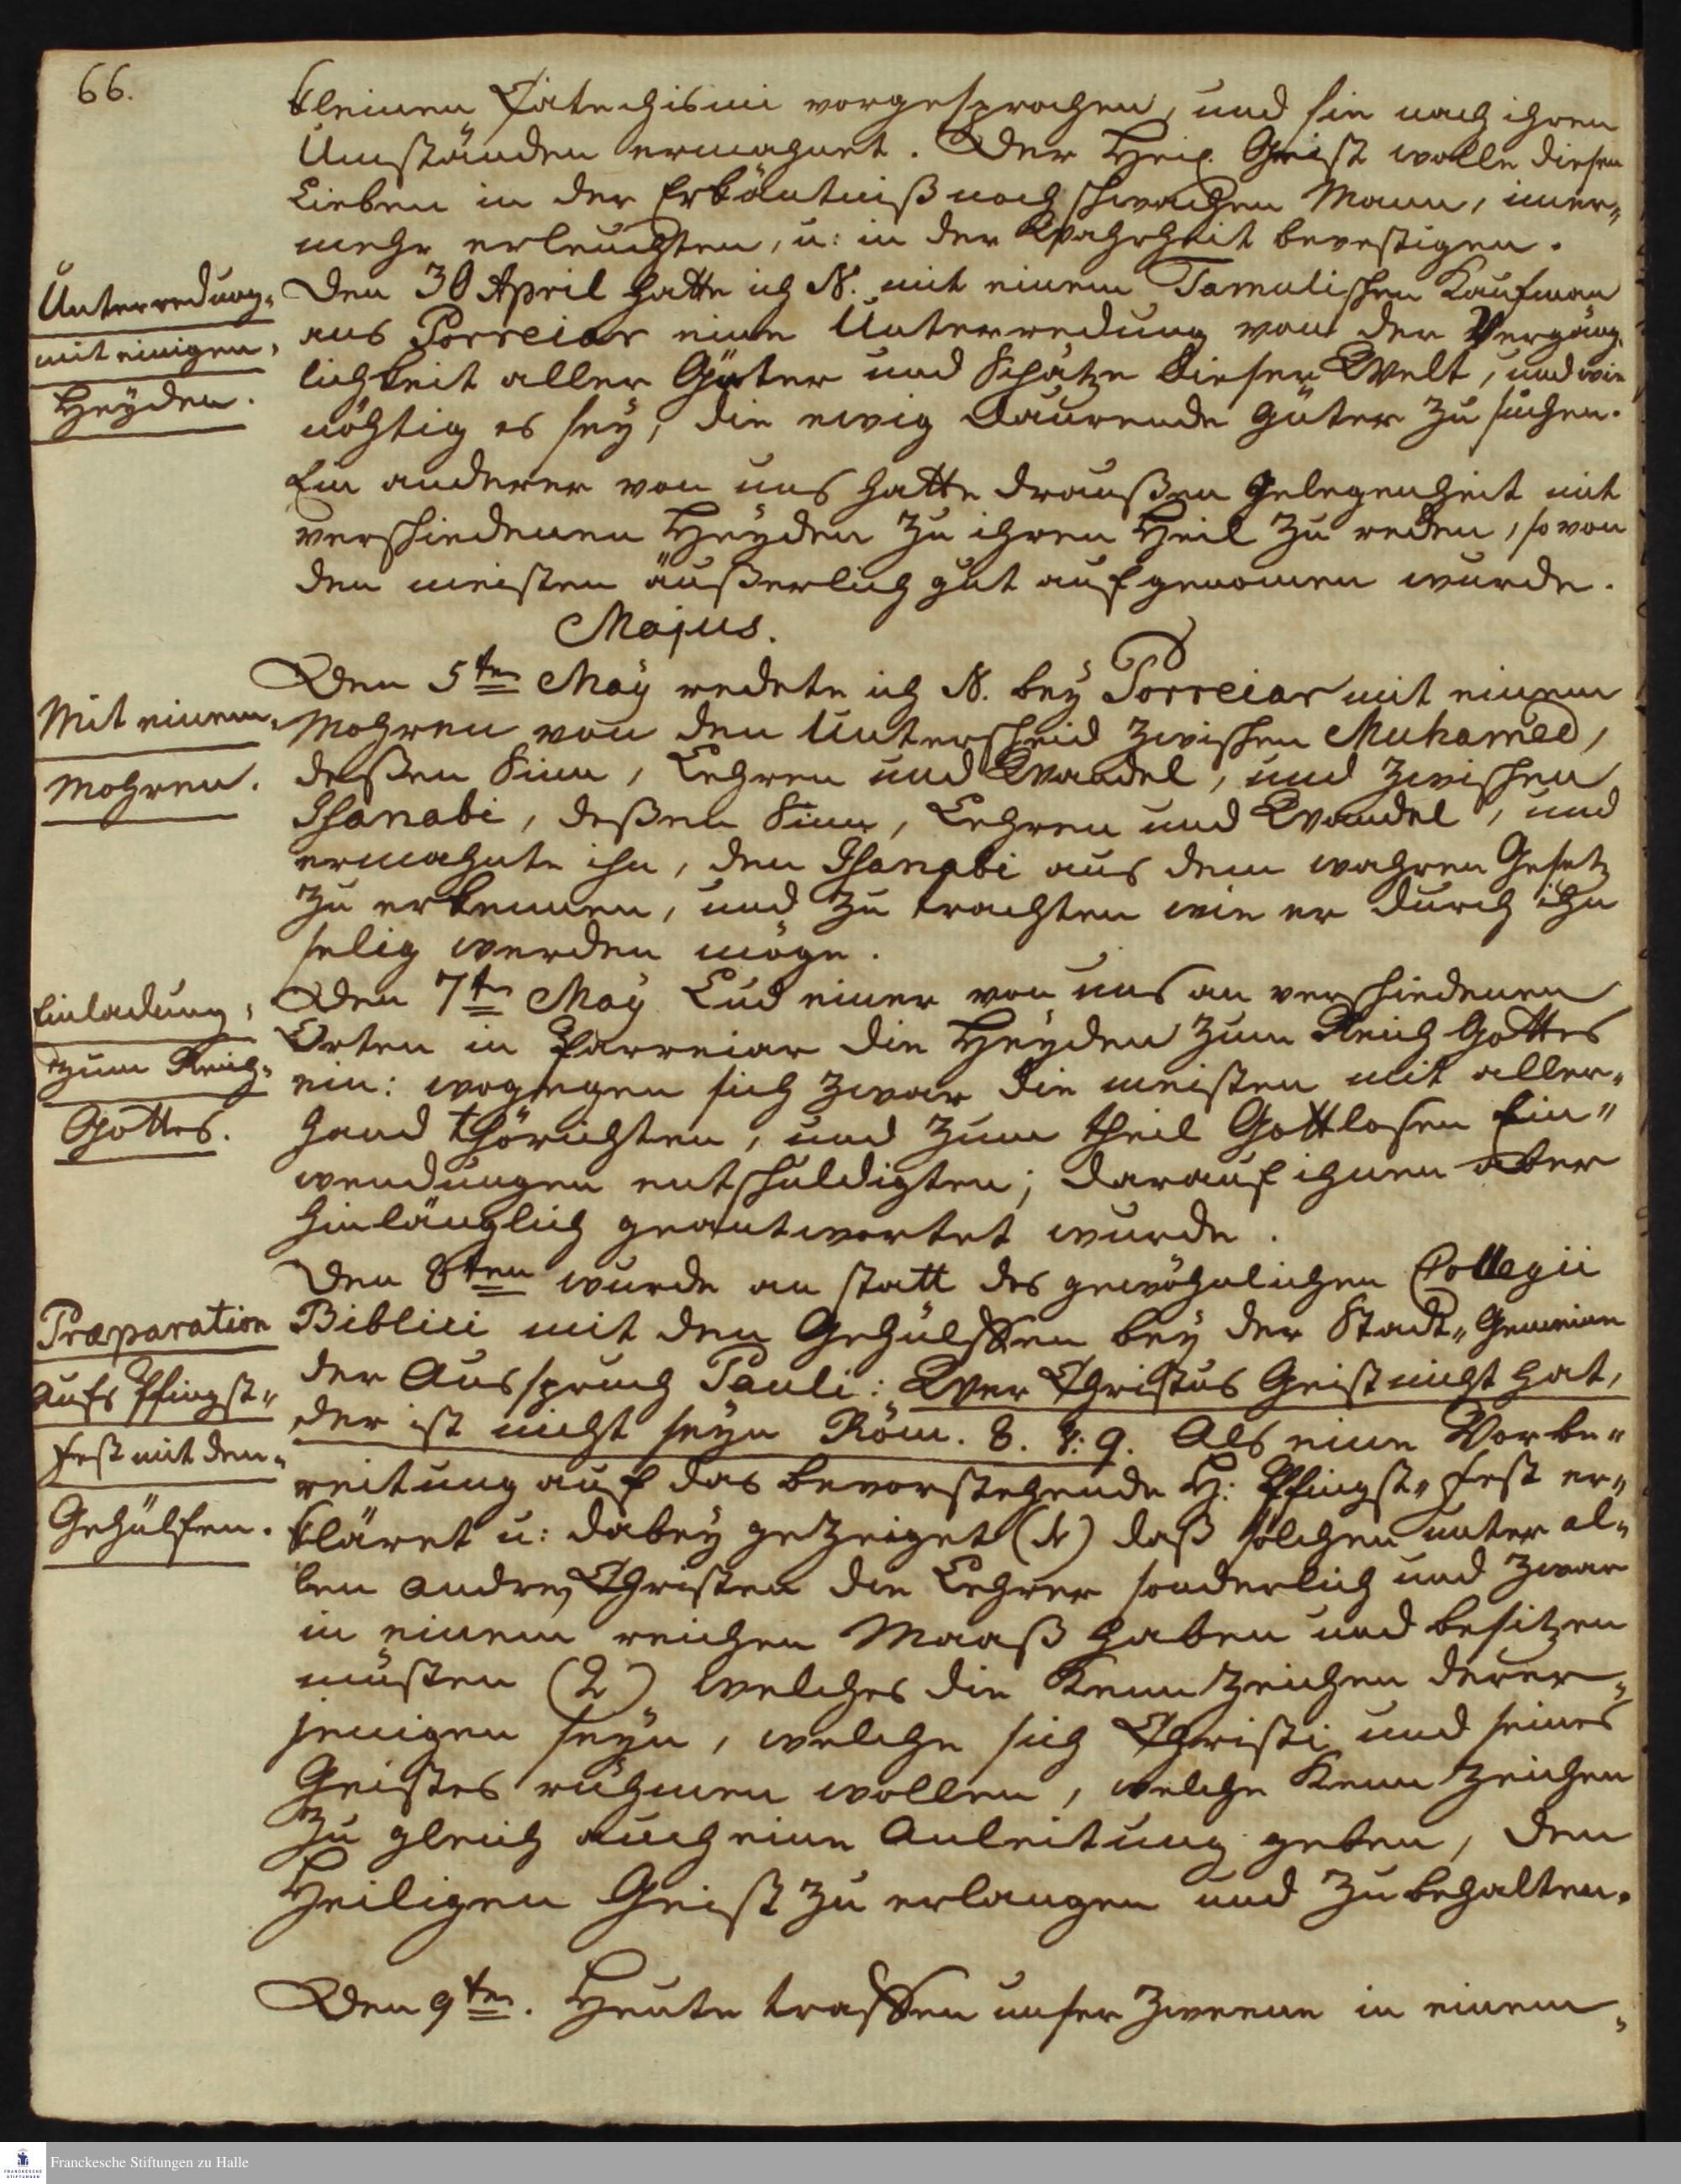 66.
kleinen Catechismi vorgesprochen, und sie nach ihren
Umständen ermahnet. Der Heil. Geist wolle diesen
Lieben in der Erkäntniß noch schwachen Mann, immer„
mehr erleuchten, u: in der Wahrheit bevestigen.
Unterredung„
mit einigen„
Heyden.
Den 30 April hatte ich N. mit einem Tamulischen Kaufman
aus Porreiar eine Unterredung von der Vergäng„
lichkeit aller Güter und Schätze dieser Welt, und wie
nöhtig es sey, die ewig daurende Güter zu suchen.
Ein anderer von uns hatte draußen Gelegenheit mit
verschiedenen Heyden zu ihren Heil zu reden, so von
den meisten äußerlich gut aufgenomen wurde.
Majus.
Mit einem„
Mohren.
Den 5ten May redete ich N. bey Porreiar mit einem
Mohren von den Unterscheid zwischen Muhamed,
deßen Sinn, Lehren und Wandel, und zwischen
Isanabi, deßen Sinn, Lehren und Wandel, und
ermahnte ihn, den Isanabi aus dem wahren Gesetz
zu erkennen, und zu trachten wie er durch ihn
selig werden möge.
Einladung„
zum Reich„
Gottes.
Den 7ten May Lud einer von uns an verschiedenen
Orten in Parreiar die Heyden zum Reich Gottes
ein: wogegen sich zwar die meisten mit aller„
hand thörichten, und zum theil Gottlosen Ein„
wendungen entschuldigten; darauf ihnen aber
hinlänglich geantwortet wurde.
Præparation
aufs Pfingst„
fest mit den„
Gehülfen.
Den 8ten wurde an statt des gewöhnlichen Collegii
Biblici mit den Gehülffen bey der Stadt„ Gemeine
der Ausspruch Pauli: Wer Christus Geist nicht hat,
der ist nicht seyn Röm. 8. v: 9. Als eine Vorbe„
reitung auf das bevorstehende H: Pfingst„ fest er„
kläret u: dabey gezeiget (1) daß solchen unter al„
len andren Christen die Lehrer sonderlich und zwar
in einem reichen Maaß haben und besitzen
müsten (2) welches die Kennzeichen derer„
jenigen seyn, welche sich Christi und seines
Geistes rühmen wollen, welche Kennzeichen
zu gleich auch eine Anleitung geben, den
Heiligen Geist zu erlangen und zu behalten.
Den 9ten. Heute traffen unser Zweene in einem„
Franckesche Stiftungen zu Halle